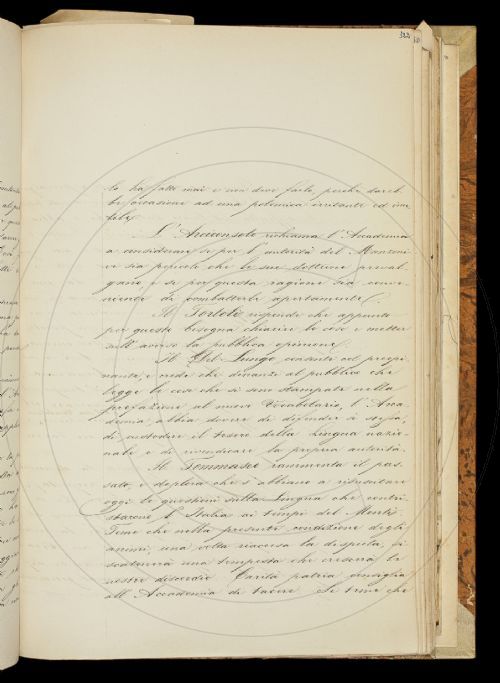 322
lo ha fatto mai e non deve farlo, perchè dareb-
be occasione ad una polemica irritante ed inu-
tile.
L'Arciconsolo richiama l'Accademia
a considerare se per l'autorità del Manzoni
vi sia pericolo che le sue dottrine preval-
gano, e se per questa ragione sia conve-
niente di combatterle apertamente.
Il Tortoli risponde che appunto
per questo bisogna chiarire le cose e metter
sull'avviso la pubblica opinione.
Il Del Lungo consente col preopi-
nante, e crede che dinanzi al pubblico che
legge le cose che si sono stampate nella
prefazione al nuovo Vocabolario, l'Acca-
demia abbia dovere di difender sè stessa,
di custodire il tesoro della Lingua nazio-
nale e di rivendicare la propria autorità.
Il Tommaseo rammenta il pas-
sato, e deplora che s'abbiano a risuscitare
oggi le questioni sulla Lingua che contri-
starono l'Italia ai tempi del Monti.
Teme che nella presente condizione degli
animi, una volta riaccesa la disputa, si
scatenerà una tempesta che crescerà le
nostre discordie. Carità patria consiglia
all'Accademia di tacere. Si teme che